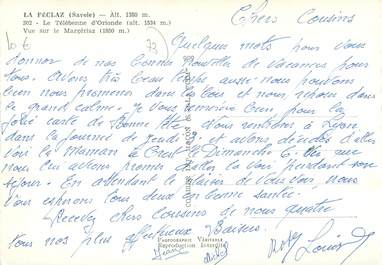 LA FECLAZ (Savoie) — Alt. 1380 m.
302 - Le Télébenne d'Orionde (alt. 1534 m.)
Vue sur le Margériaz (1850 m.)
10 €
73
Chers Cousins
Quelques mots pour vous
donner de nos bonnes nouvelles de vacances pour
tous. Avons très beau temps aussi nous pouvons
bien nous promener dans les bois et nous
le grand calme. Je vous remercie bien pour la
jolie carte de Bonne fête. Nous rentrons à Lyon
dans la journée de jeudi et avons décidé d'aller
voir la Maman à le Dimanche 6.
nous lui avions promis d'aller la voir pendant son
séjour. En attendant le plaisir de vous voir, nous
vous espérons tous deux en bonne santé.
Recevez chers cousins de nous quatre
tous nos plus affectueux Baisers.
PHOTOGRAPHIE Véritable
Reproduction Interdite
Jean Louis